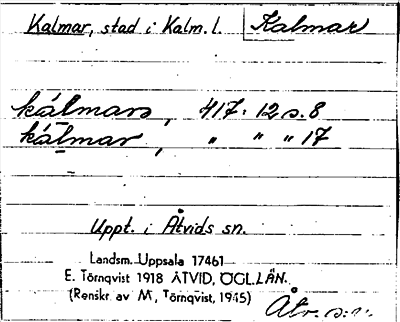 Kalmar, stad i Kalm. l. Kalmar
kálmars, 417: 12 s. 8
kálmar, " " " 17
Uppt. i Åtvids sn.
Landsm. Uppsala 17461
E. Törnqvist 1918 ÅTVID, ÖGL. LÄN.
(Renskr. av M. Törnqvist, 1945)
Åtv. s:n.